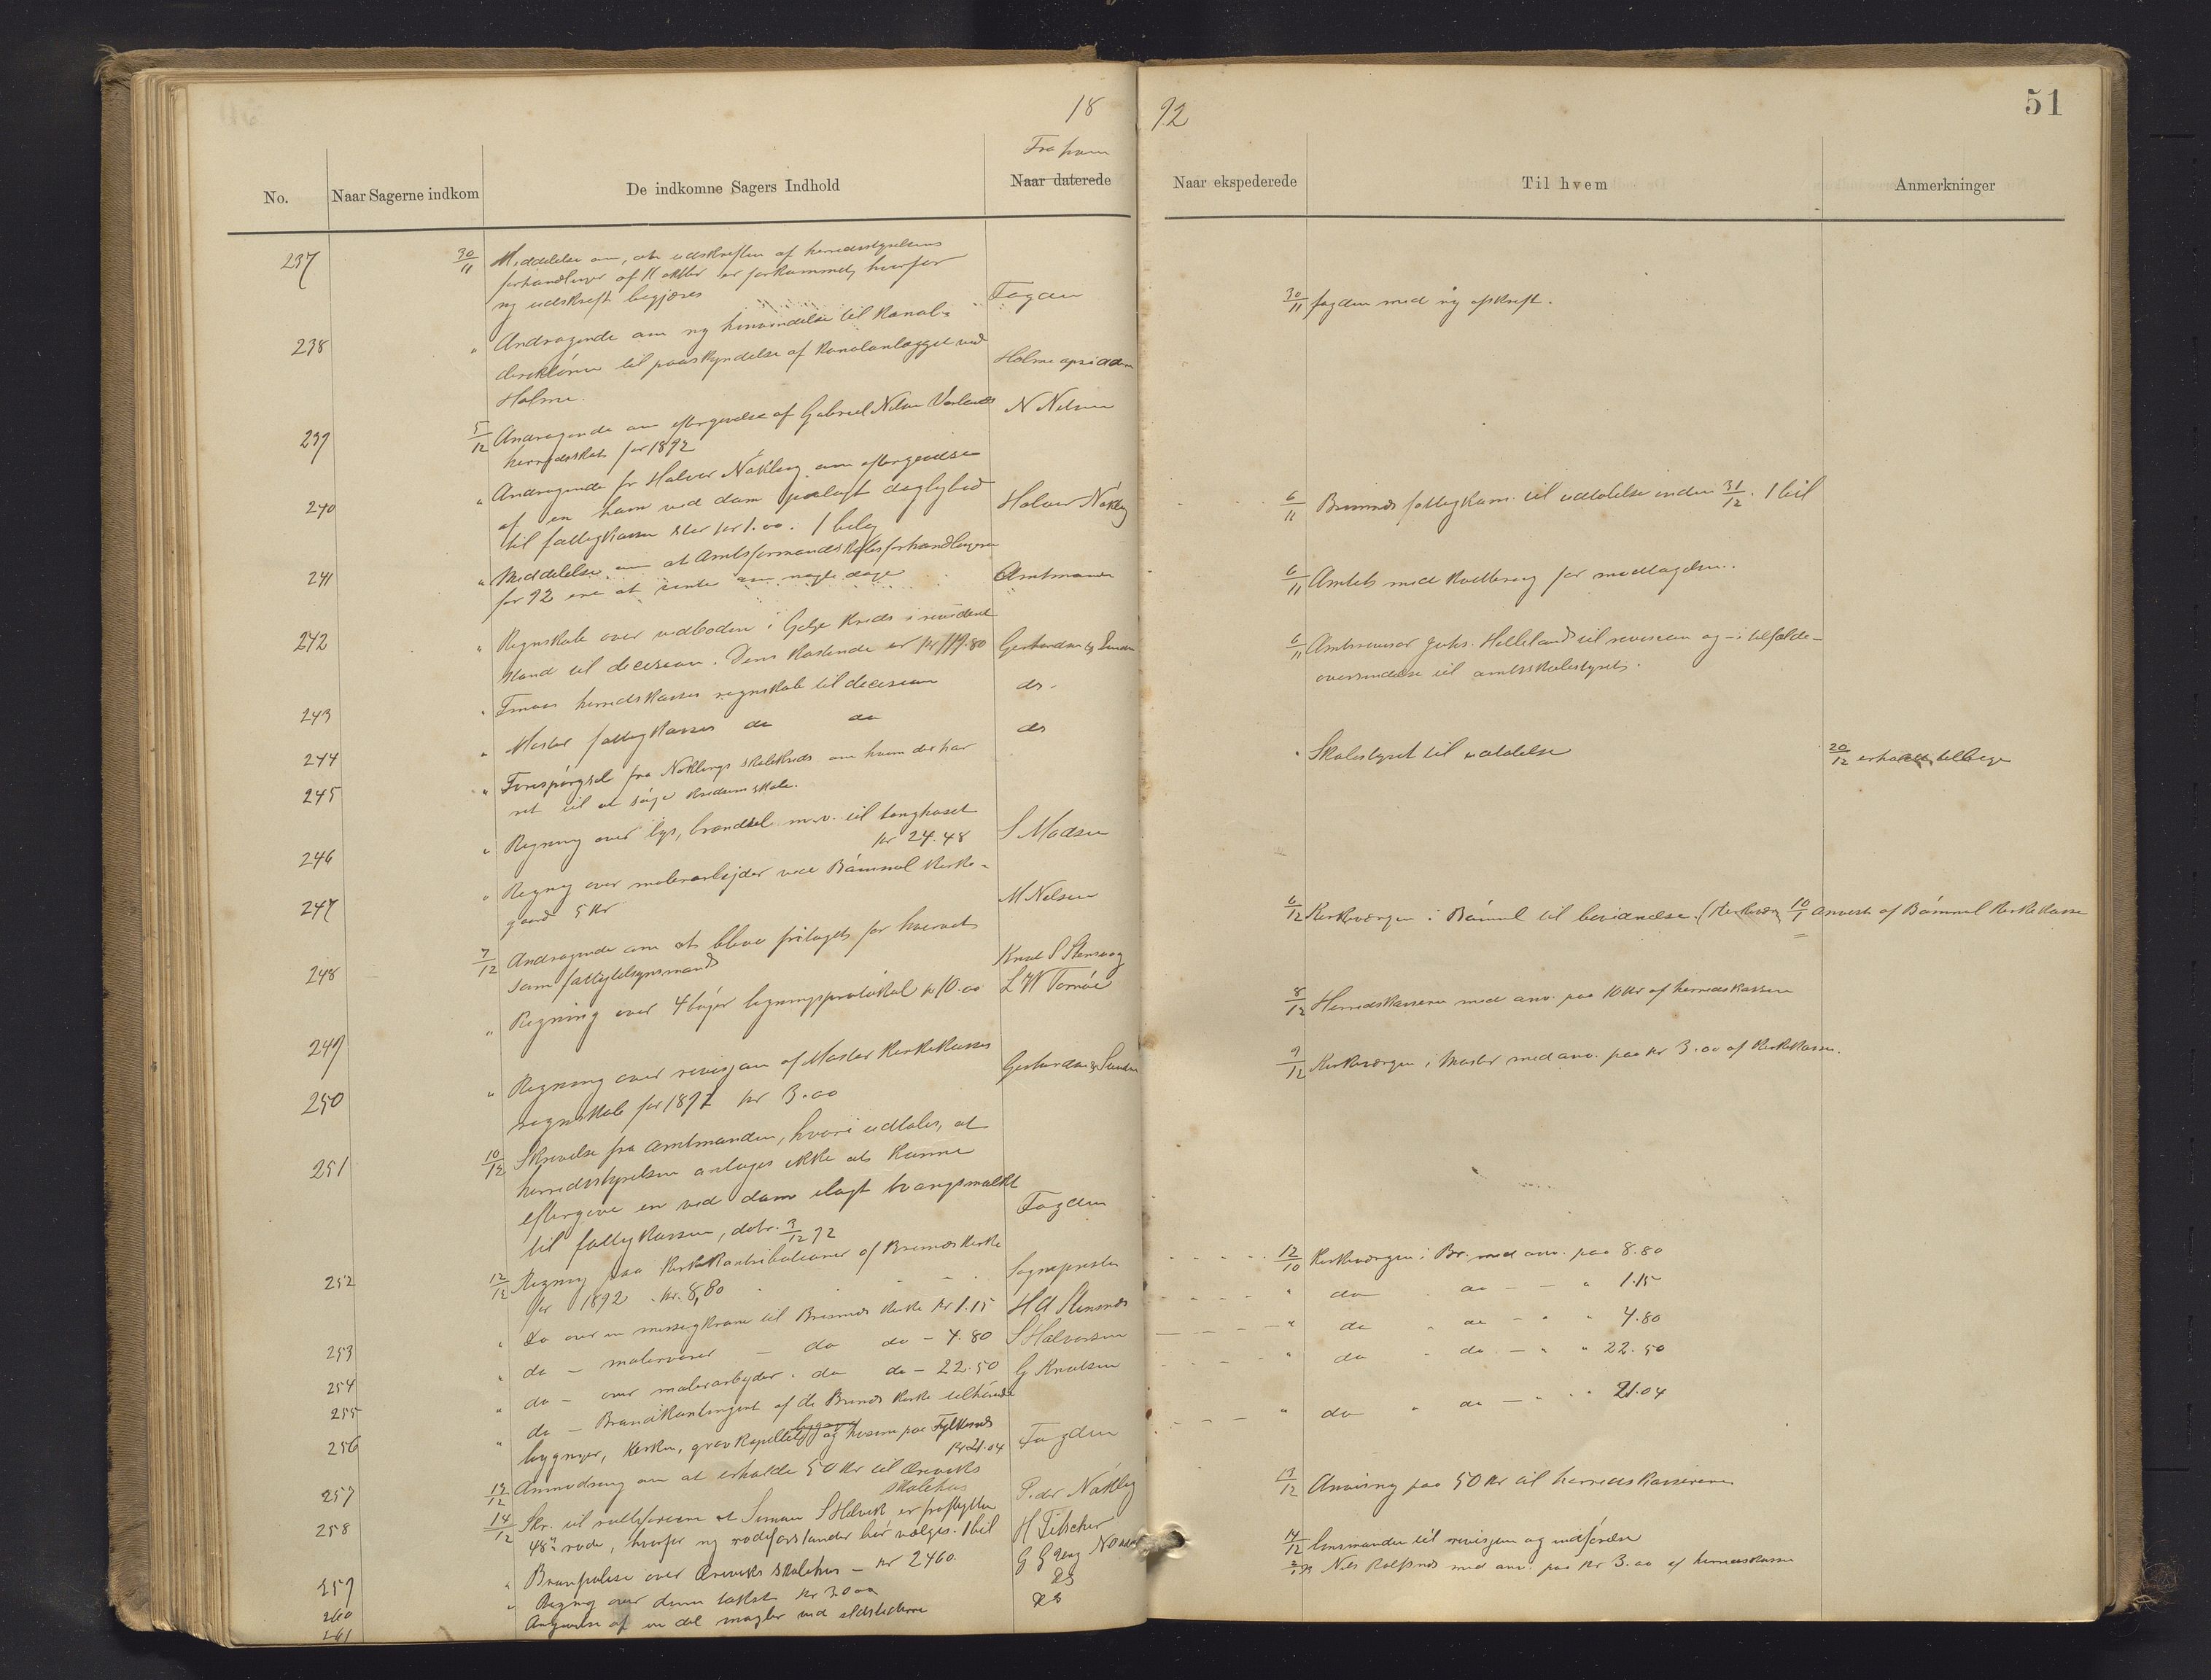 18
92
51
Fra hvem
No.
Naar Sagerne indkom
De indkomne Sagers Indhold
Naar daterede
Naar ekspederede
Til hvem
Anmerkninger
237 30/11 Meddelelse om, at udskriften af herredsstyrelsens
forhandlinger af 11 oktbr er forkommet, hvorfor
ny udskrift begjæres Fogden 30/11 fogden med ny afskrift.
238 " Andragende om ny henvendelse til Kanal-
direktören til paaskyndelse af Kanalanlægget ved
Holme. Holme
239 5/12 Andragende om eftergivelse af Gabriel Nilsen
herredsskat for 1892 N Nilsen
240 " Andragende fr Halvor Nökling om eftergivelse
af en ham ved dom paalagt dagligbod
til fattigkassen stor kr 1.00. 1 bilag Halvor Nökling 6/11 Bremnes fattigkom. til udtalelse inden 31/12. 1 bil
241 " Meddelelse om at Amtsformandskabsforhandlingerne
for 92 ere at vente om nogle dage Amtmanden 6/11 Amtet med kvittering for modtagelsen.
242 " Regnskab over i Kreds i revideret
stand til decision. Dens kostende er kr 119.80 6/11 Amtsrevisor Johs. Helleland til revision og – i tilfælde –
oversendelse til amtsskolestyret.
243 " herredskasses regnskab til decision do -
244 " Moster fattigkasses do do do
245 " Forespörgsel fra Nöklings skolekreds om hvem der har
ret til at söge kredsens skole. " Skolestyret til udtalelse 20/12 erholdt tilbage
246 " Regning over lys, brændsel m.v. til tinghuset
kr 24.48 S Madsen
247 " Regning over malerarbejder ved Bömmel Kirke-
gaard 5 kr M Nilsen 6/12 Kirkeværgen i Bömmel til bevidnelse. 10/1 anvist af Bömmel Kirkekasse
248 7/12 Andragende om at blive fritaget for hvervet
som fattigtilsynsmand Knut S Stensvag
249 " Regning over 4 böger ligningsprotokol kr 10.00 L W Tornöe 8/12 Herredskasseren med anv. paa 10 kr af herredskassen
250 " Regning over revisjon af Moster Kirkekasses
regnskab for 1892 kr 3.00 9/12 Kirkeværgen i Moster med anv. paa kr 3.00 af Kirkekassen.
251 10/12 Skrivelse fra amtmanden, hvori udtales, at
herredsstyrelsen antages ikke at kunne
eftergive en ved dom ilagt tvangsmulkt
til fattigkassen, datr. 3/12 92 Fogden
252 12/12 Regning paa Kirkekontributioner af Bremnes Kirke
for 1892 kr. 8,80 Sognepresten 12/10 Kirkeværgen i Br. med anv. paa 8.80
253 " Do over en messingkrane til Bremnes Kirke kr 1.15 H A Stensnes " do do — " 1.15
254 " do – malervarer – do do – 4.80 S Halvorsen " do " do – " " 4.80
255 " do – over malerarbejder . do do – 22.50 G Knutsen " do " do. – " " 22.50
256 " do – Brandkontingent af de Bremnes Kirke tilhörende
bygninger, Kirken, gravkapellet og husene paa
kr 21.04 Fogden " do " do – " " 21.04
257 13/12 Anmodning om at erholde 50 kr til
skolehus Peder Nökling 13/12 Anvisning paa 50 kr til herredskassereren
258 14/12 Skr. til at Simon S er fraflyttet
48de rode, hvorfor ny rodeforstander bör vælges. 1 bil H Fitscher 14/12 Lensmanden til revisjon og
259 " Brandpolise over skolehus – kr 2460.
260 " Regning over denne takst kr 3.00 do Nils med anv. paa kr 3.00 af herredskassen
261 Angivelse af en del mangler ved ildstederne do